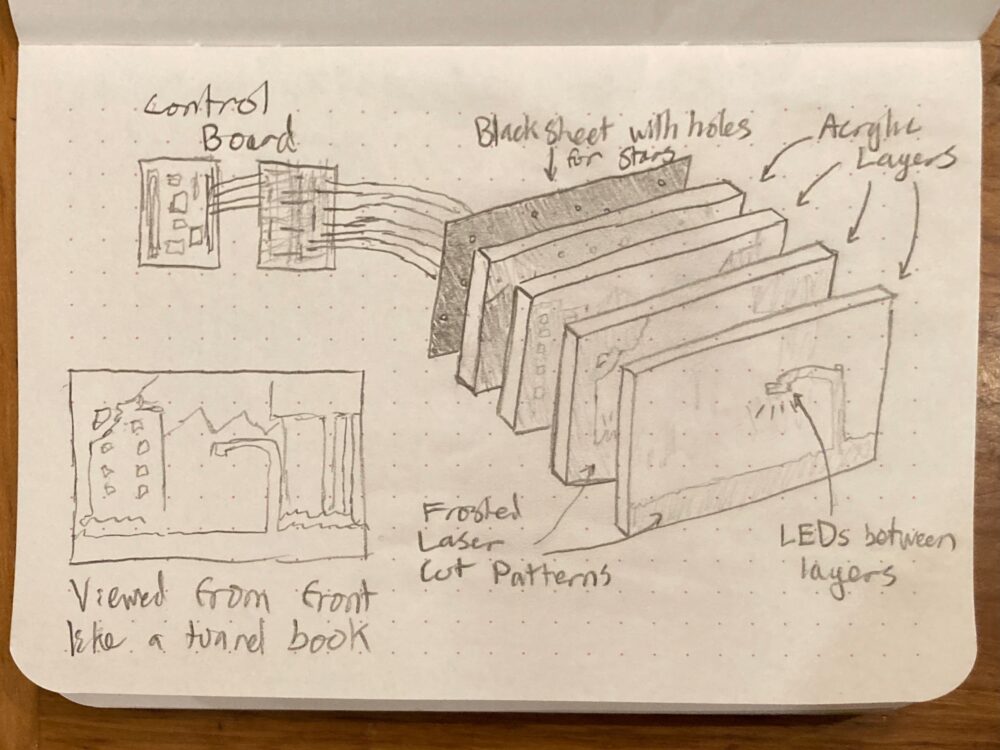 Control
Board
Black sheet with holes
for stars
Acrylic
Layers
Frosted
Laser
Cut Patterns
LEDs between
layers
Viewed from front
like a tunnel book